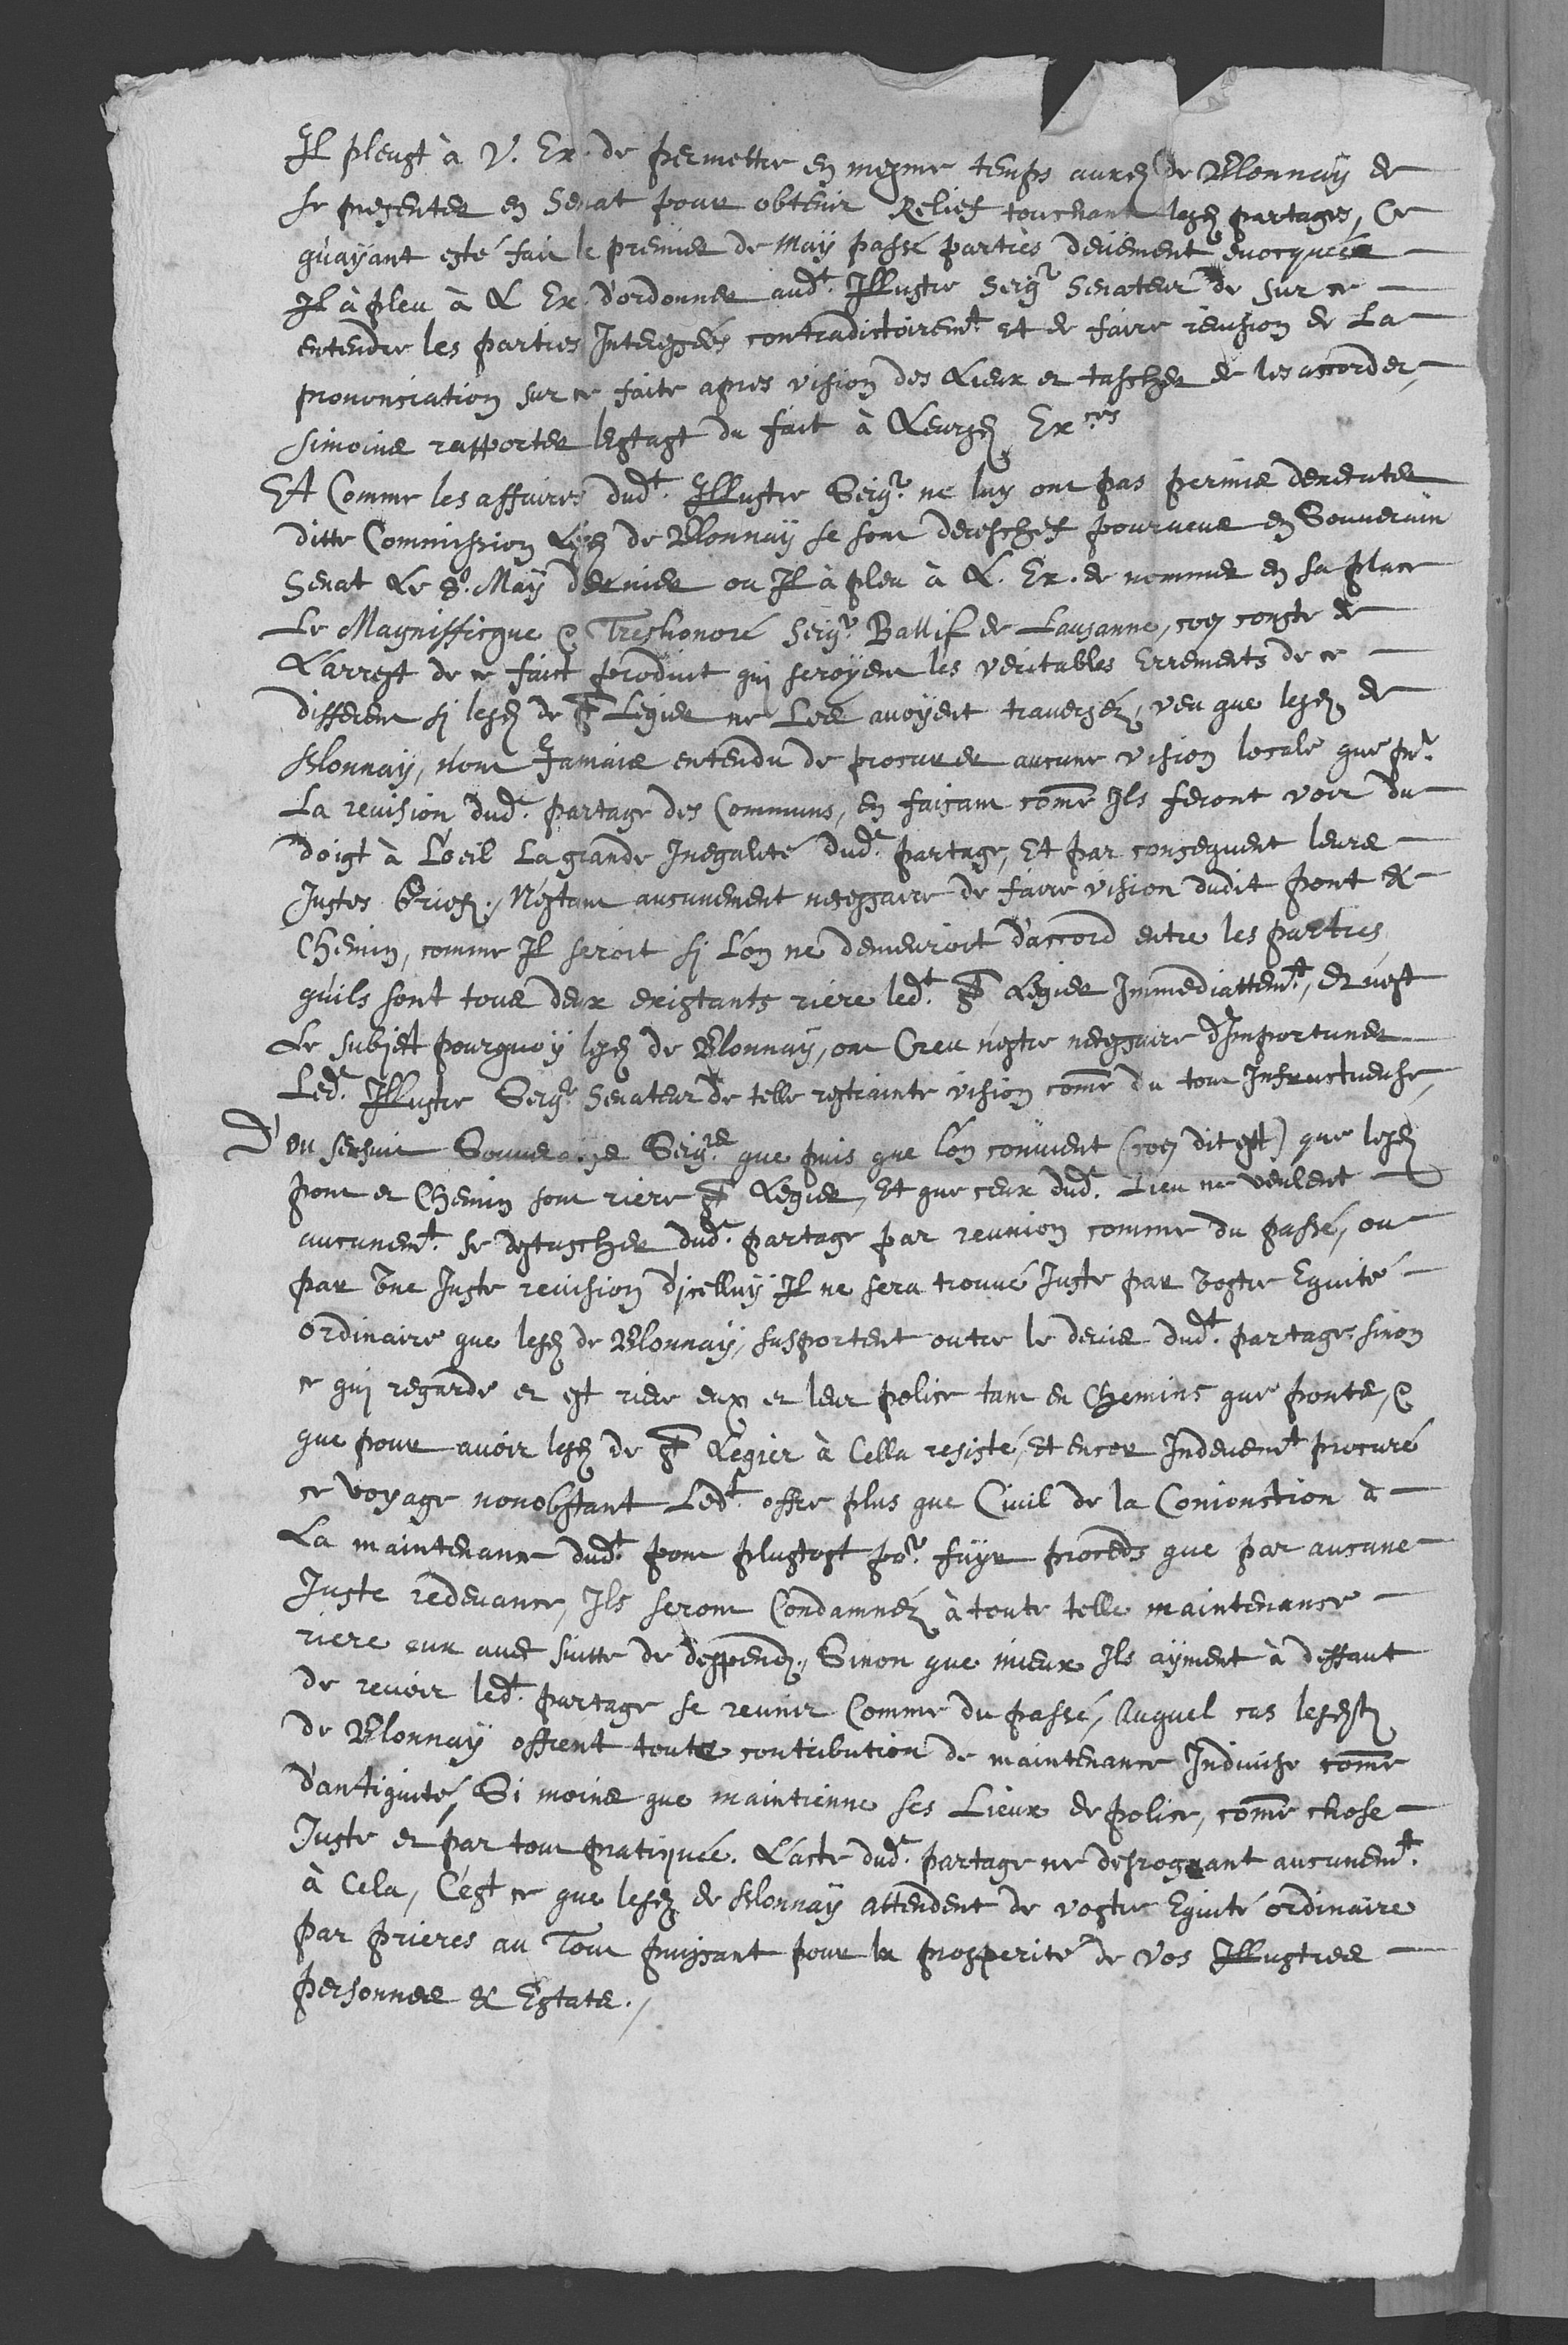 Il pleust à V. Ex. de permettre en mesme temps auxd de Blonnay de
se presenter en Senat pour obtenir Relief touchant lesd partages, Ce
qu'ayant esté fait le premier de May passé parties deüement evocquées
Il à pleu à L Ex. d'ordonner audt. Illustre Seigr Senateur de sur ce
entendre les parties Interessées contradictoiremt et de faire revision de La
prononciation sur ce faite apres vision des Lieux et tascher de les accorder,
simoins rapporter lestast du fait à Leursd Exces
Et Comme les affaires dudt. Illustre Seigr. ne luy ont pas permis dexecuter
ditte Commission Lesd de Blonnay se sont derechef pourveus en Souverain
Senat Le 8e. May dernier ou Il à pleu à L. Ex. de nommer en sa place
Le Magniffique & Treshonoré Seigr. Ballif de Lausanne, coe conste de
L'arrest de ce faict produict qui seroyent les veritables Errements de ce
different si lesd de St Legier ne Les avoyent traversez, veu que lesd de
Blonnay, n'ont Jamais entendu de procurer aucune vision locale que pr.
La revision dud. partage des Communs, en faisant come Ils feront voir du
doigt à L'oeil La grande Inegalité dud. partage, Et par consequent leurs
Justes Griefs., N'estant aucunement necessaire de faire vision dudit pont &
Chemin, comme Il seroit si L'on ne demeuroit d'accord entre les parties
qu'ils sont tous deux existants riere ledt. St Legier Immediattemt., et c'est
Le subject pourquoy lesd de Blonnay, ont Creu n'estre necessaire d'Importuner
Led. Illustre Seigr. Senateur de telle restrainte vision come du tout Infructueuse,
D'ou sensuit Souverains Seigrs. que puis que l'on convient (coe dit est) que lesd
pont et Chemin sont riere St Legier, Et que ceux dud. Lieu ne veulent
aucunemt. se destascher dud. partage par reunion comme du passé, ou
par une Juste revision d'icelluy Il ne sera trouvé Juste par vostre Equité
ordinaire que lesd de Blonnay, susportent outre le devis dudt. partage sinon
ce qui regarde et est riere eux et leur police tant en Chemins que ponts, &
que pour avoir lesd de St Legier à Cella resisté, Et encor Indeuemt procuré
ce voyage nonobstant Ledt. offre plus que Civil de la Conionction à
La maintenance dudt. pont plustost por. fuyr proceds que par aucune
Juste redevance, Ils seront Condamnéz à toute telle maintenance
riere eux avec suitte de despends., Sinon que mieux Ils ayment à deffaut
de revoir ledt. partage se reunir Comme du passé, Auquel cas lesd
de Blonnay offrent toute contribution de maintenance Indivise come
d'antiquité, Si moins que maintienne ses Lieux de police, come chose
Juste et par tout pratiquée. L'acte dud. partage ne desrogeant aucunemt.
à Cela, C'est ce que lesd de Blonnay attendent de vostre Equité ordinaire
par prieres au Tout puissant pour la prosperité de vos Illustres
personnes & Estats.